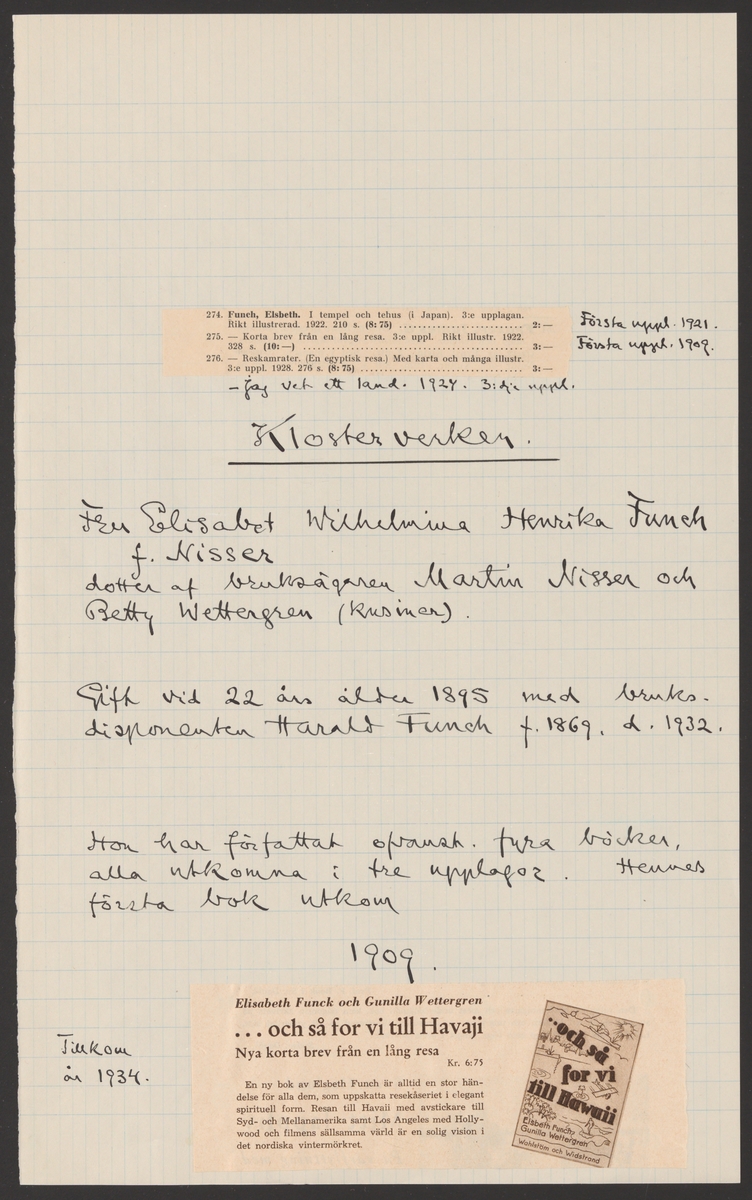 274. Funch, Elsbeth. I tempel och tehus (i Japan). 3:e upplagan.
Rikt illustrerad. 1922. 210 s. (8:75) ........................ 2:—
Första uppl. 1921.
275. — Korta brev från en lång resa. 3:e uppl. Rikt illustr. 1922.
328 s. (10:—) ........................ 3:—
Första uppl. 1909.
276. — Reskamrater. (En egyptisk resa.) Med karta och många illustr.
3:e uppl. 1928. 276 s. (8:75) ........................ 3:—
— Jag vet ett land. 1924. 3:dje uppl.
Klosterverken.
Fru Elisabet Wilhelmina Henrika Funch
f. Nisser
dotter af bruksägaren Martin Nisser och
Betty Wettergren (kusiner).
Gift vid 22 års ålder 1895 med bruks-
disponenten Harald Funch f. 1869. d. 1932.
Hon har författat ofvanst. fyra böcker,
alla utkomna i tre upplagor. Hennes
första bok utkom
1909.
Tillkom
år 1934.
Elisabeth Funck och Gunilla Wettergren
... och så for vi till Havaji
Nya korta brev från en lång resa
Kr. 6:75
En ny bok av Elsbeth Funch är alltid en stor hän-
delse för alla dem, som uppskatta resekåseriet i elegant
spirituell form. Resan till Havaii med avstickare till
Syd- och Mellanamerika samt Los Angeles med Holly-
wood och filmens sällsamma värld är en solig vision i
det nordiska vintermörkret.
..och så
for vi
till Hawaii
Elsbeth Funch,
Gunilla Wettergren
Wahlström och Widstrand